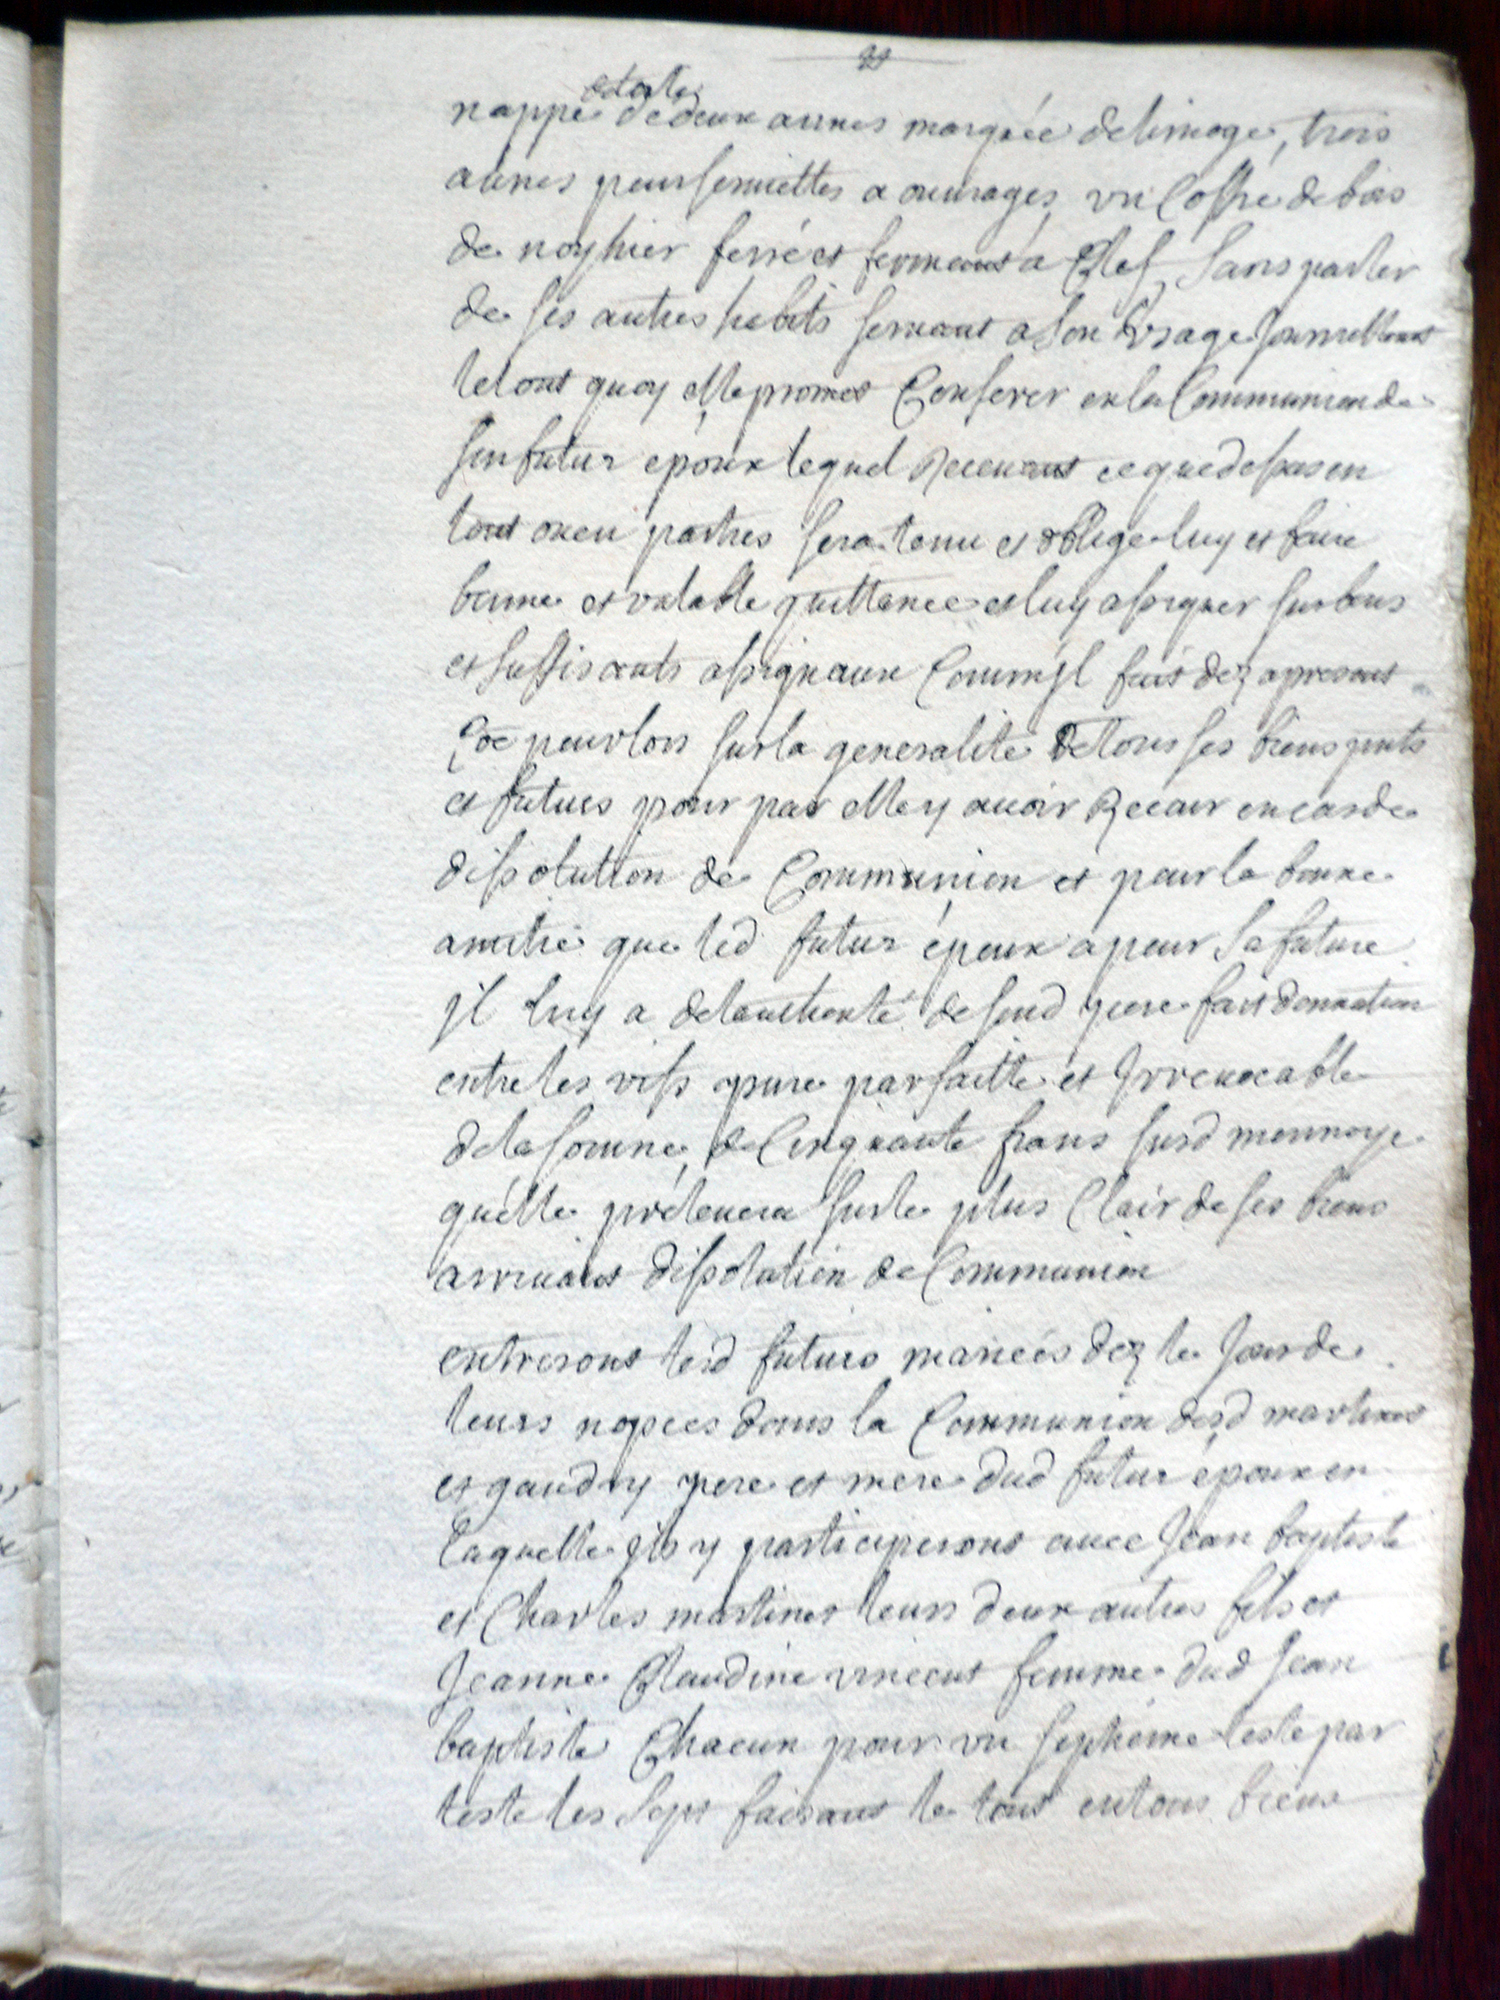 nappe de deux aunes marquée de limage, trois
aunes pour serviettes a ouvrages, un Coffre de bois
de noyhier ferré et fermant a Clef Sans parler
de ses autres habits servant a Son Vsage
le tout quoy elle promet Conferer en la Communion de
son futur epoux lequel Recevant ce que dessus en
tout ou en parties sera tenu et obligé luy et faire
bonne et valable quittance et luy assigner sur bons
et suffisants assignaux Comm'jl fait dez apresent
pour lors sur la generalité De tous ses biens pnts
et futurs pour par elle y avoir Recour en cas de
dissolution de Communion et pour la bonne
amitié que led futur époux a pour Sa future
jl luy a de lauthorité de sond pere fait donnation
entre les vifs pure parfaitte et Jrrevocable
de la somme de Cinquante frans susd monnoye
qu'elle prélevera sur le plus Clair de ses biens
arrivant dissolution de Communion
entreront lesd futurs mariées dez le Jour de
leurs nopces dans la Communion desd martinet
et gaudry pere et mere dud futur époux en
laquelle jls y participeront avec Jean baptiste
et Charles martinet leurs deux autres fils et
Jeanne Claudine vincent femme dud Jean
baptiste Chacun pour un septiéme teste par
teste les Sept faisant le tout en tous biens